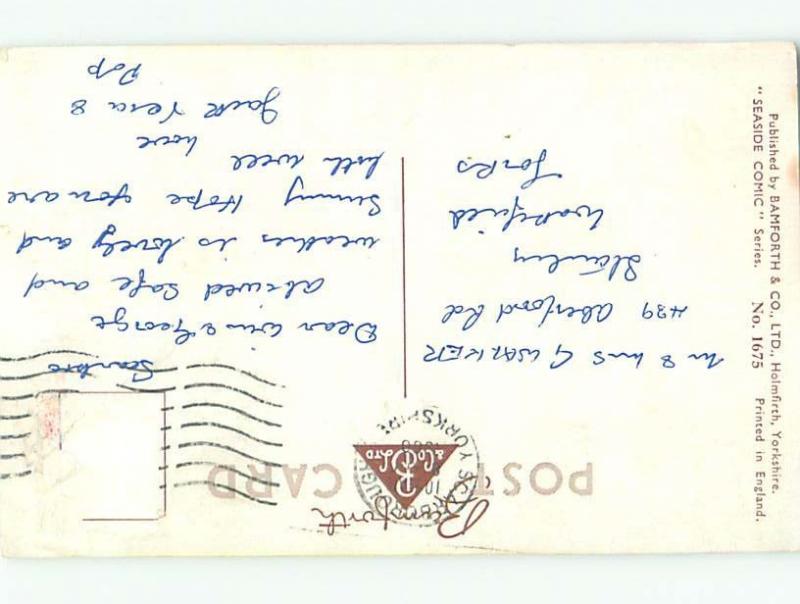 POST CARD
Bamforth
& Co. Ltd
SCARBOROUGH
YORKSHIRE
Scarbro
Dear Win & George
arived safe and
weather is lovely and
Sunny Hope you are
both well
love
Jack Vera &
Pop
M & Mrs G WALKER
439 Aberford Rd
Stanley
Wakefield
Yorks
Published by BAMFORTH & CO., LTD., Holmfirth, Yorkshire.
"SEASIDE COMIC" Series. No. 1675 Printed in England.